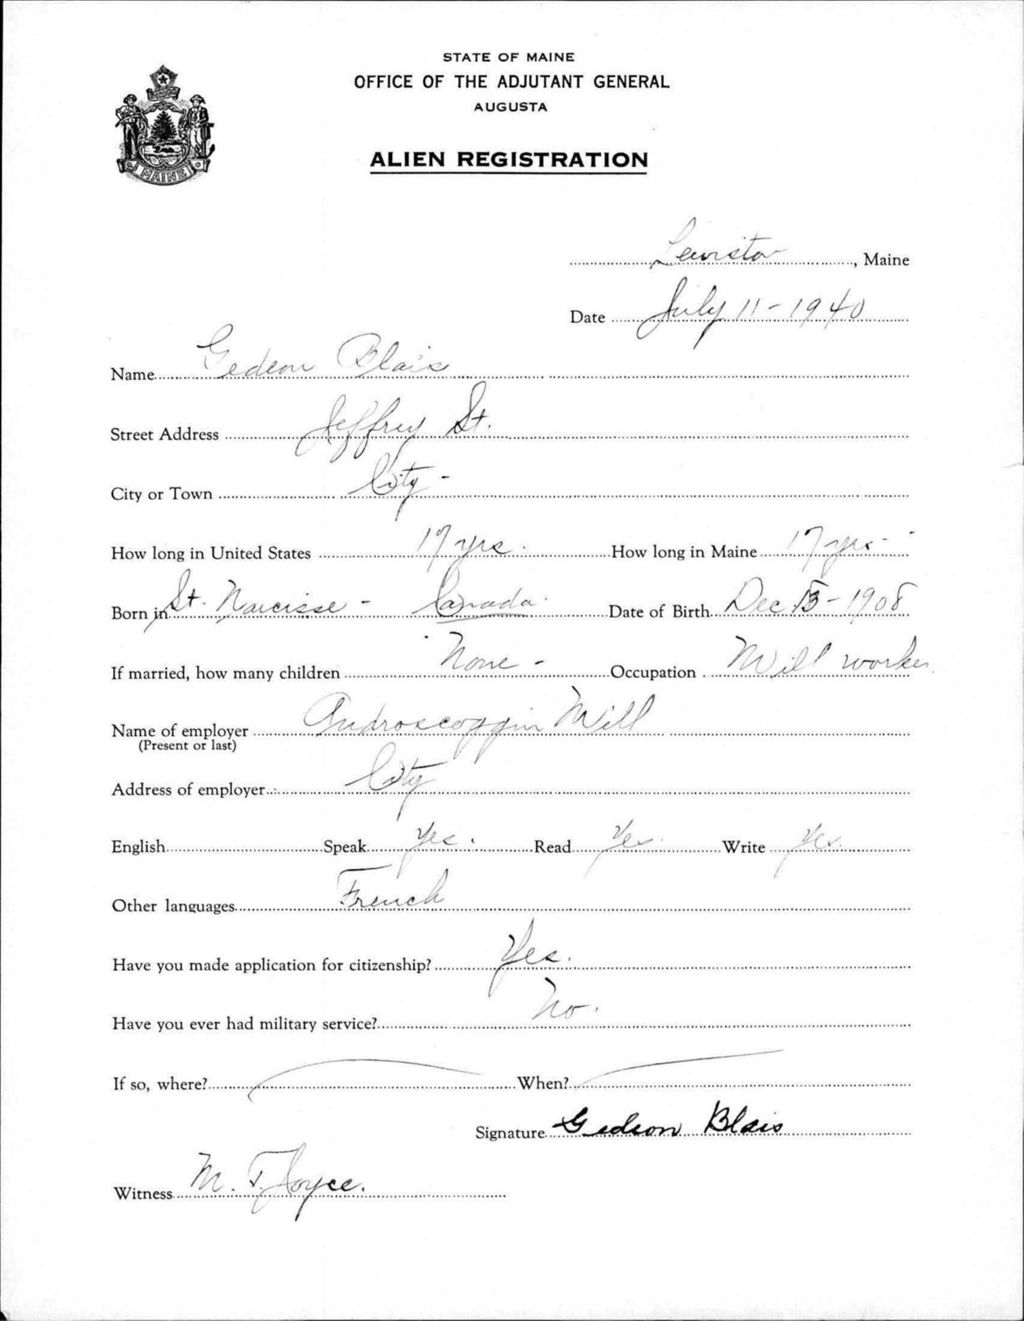 STATE OF MAINE
OFFICE OF THE ADJUTANT GENERAL
AUGUSTA
ALIEN REGISTRATION
MAINE
Lewiston, Maine
Date July 11-1940
Name Gedeon Blais
Street Address Jeffrey St.
City or Town City -
How long in United States 17 yrs. How long in Maine 17 yrs.
Born in St. Narcisse - Canada. Date of Birth Dec 13-1908
If married, how many children None - Occupation Mill worker
Name of employer Androscoggin Mill
(Present or last)
Address of employer City
English Speak Yes. Read Yes. Write Yes.
Other languages French
Have you made application for citizenship? Yes.
Have you ever had military service? No.
If so, where? When?
Signature Gedeon Blais
Witness M. T. Joyce.